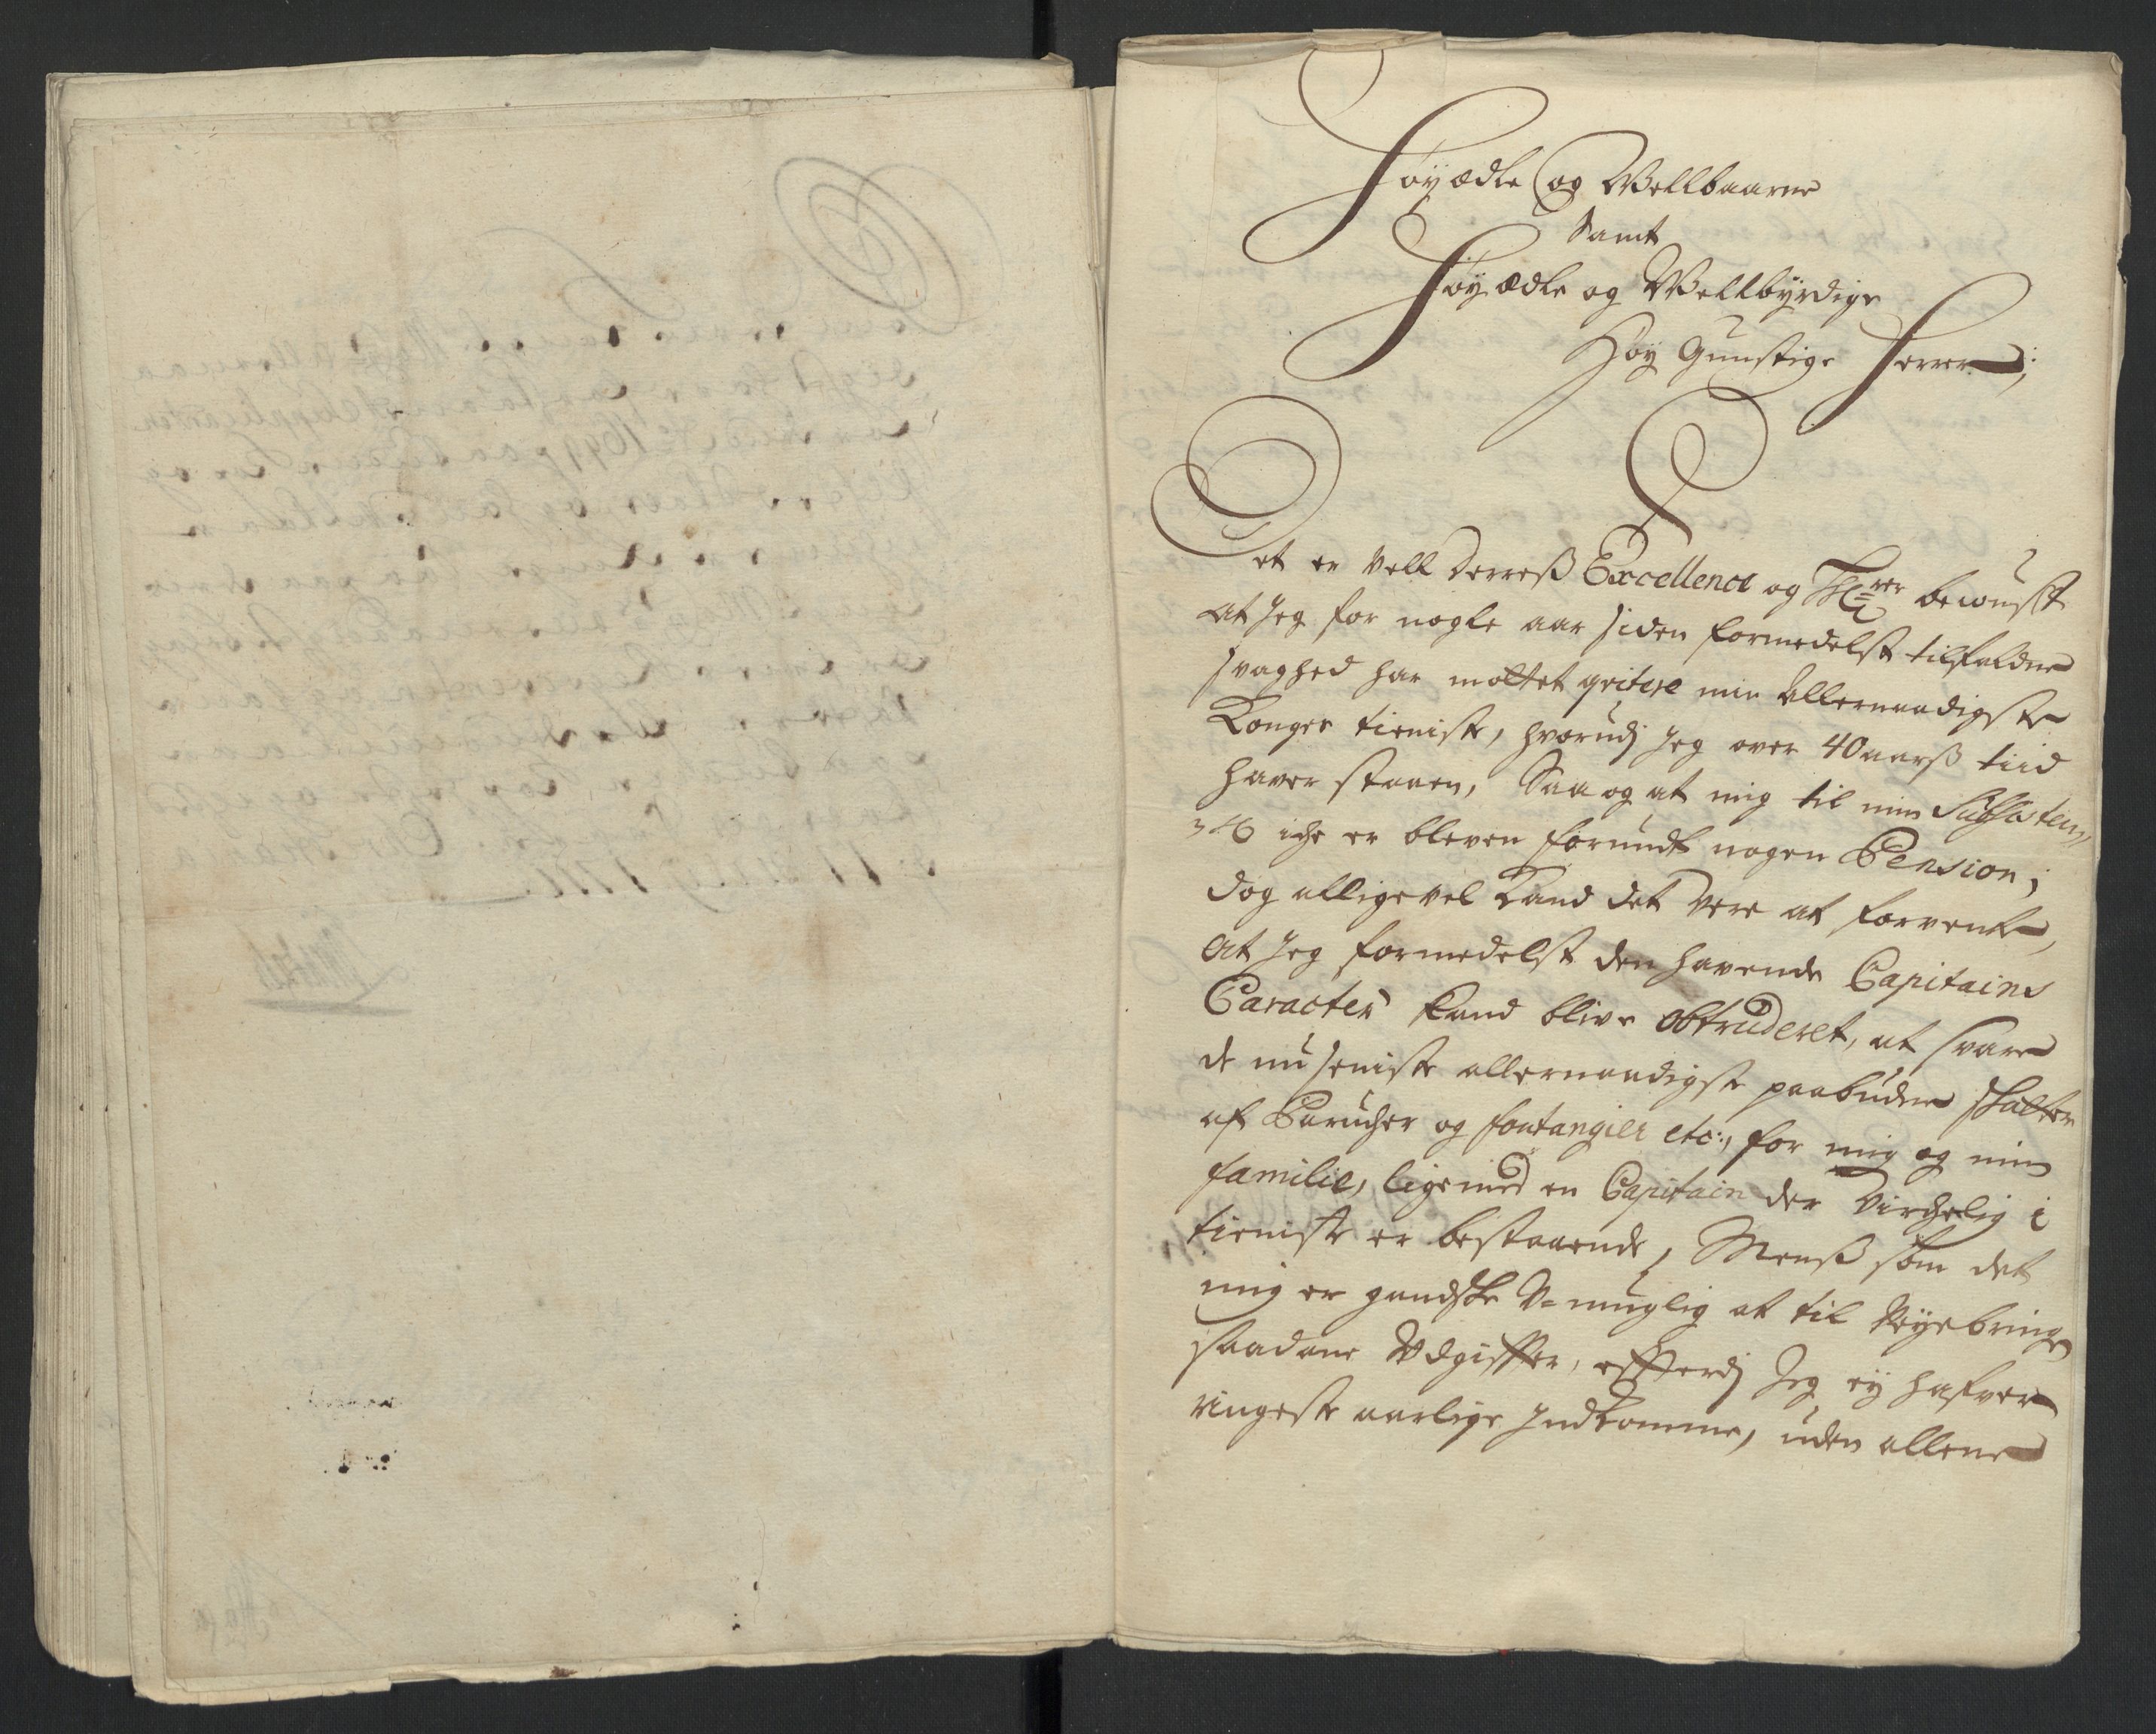 Høyædle og Wellbaarne
Samt
Høyædle og Wellbyrdige
Høy Gunstige Herrer;
Det er Vell Derreß Excellence og bewust
at Jeg for nogle aar siden formedelst tilfaldne
svaghed har mottet qvitere min Allernaadigste
Konges tieniste, hvorudj Jeg over 40 aarß tiid
haver staaen, Saa og at mig til min Subsisten,,
ce iche er bleven forundt nogen Pension;
dog alligevel Kand det Vere at forvente,
at Jeg formedelst den havende Capitains
Caracter kand blive obtruderet, at svare
de nu seniste allernaadigste paabudne skatter
af Parucher og fontangier etc:, for mig og min
familie, lige med en Capitain der Virchelig i
tieniste er bestaaende, Menß som det
mig er gandske V-muglig at til Veyebringe
saadane Udgiffter, effterdj Jeg ey hafver
ringeste aarlige Indkomme, uden allene